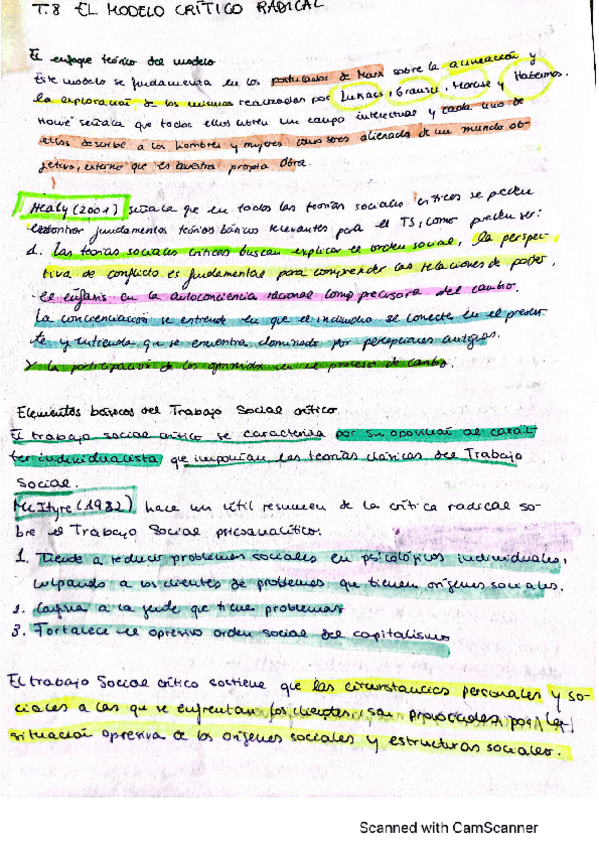 T.8 EL MODELO CRÍTICO RADICAL
El enfoque teórico del modelo
Este modelo se fundamenta en los postulados de Marx sobre la alineación y
la exploración de los mismos realizadas por Lukacs, Gramsci, Marcuse y Habermas.
Howe señala que todos ellos abren un campo intelectual y cada uno de
ellos describe a los hombres y mujeres como seres alienados de un mundo ob-
jetivo, externo que es nuestra propia obra.
Healy (2001) señala que en todas las teorías sociales críticas se pueden
encontrar fundamentos teóricos básicos relevantes para el TS, como pueden ser:
1. Las teorías sociales críticas buscan explicar el orden social, la perspec-
tiva de conflicto es fundamental para comprender las relaciones de poder,
el énfasis en la autoconciencia racional como precursora del cambio.
La concienciación se entiende en que el individuo se conecte en el presen-
te y entienda que se encuentra dominado por percepciones antiguas.
Y la participación de los oprimidos en el proceso de cambio.
Elementos básicos del Trabajo Social crítico.
El trabajo social crítico se caracteriza por su oposición al carác-
ter individualista que imponían las teorías clásicas del Trabajo
Social.
McItyre (1982) hace un útil resumen de la crítica radical so-
bre el Trabajo Social psicoanalítico:
1. Tiende a reducir problemas sociales en psicológicos individuales,
culpando a los clientes de problemas que tienen orígenes sociales.
2. a la gente que tiene problemas
3. Fortalece el opresivo orden social del capitalismo
El trabajo Social crítico sostiene que las circunstancias personales y so-
ciales a las que se enfrentan los clientes, son provocadas por la
situación opresiva de los orígenes sociales y estructuras sociales.
Scanned with CamScanner